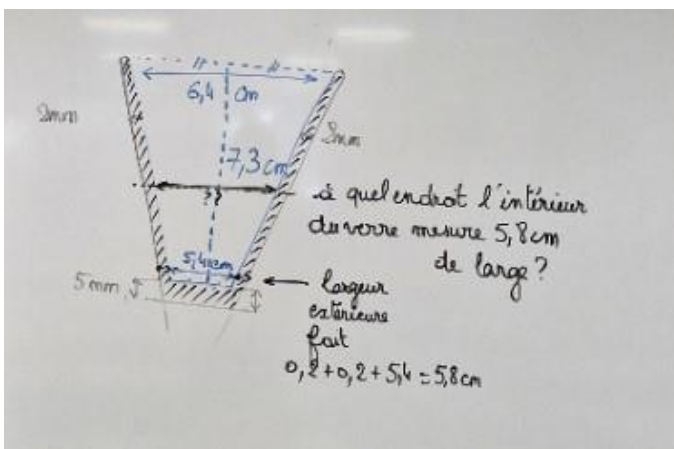 6,4 cm
2mm
2mm
7,3 cm
??
à quel endroit l'intérieur
du verre mesure 5,8cm
de large?
5,4cm
5mm
largeur
extérieure
fait
0,2+0,2+5,4=5,8cm